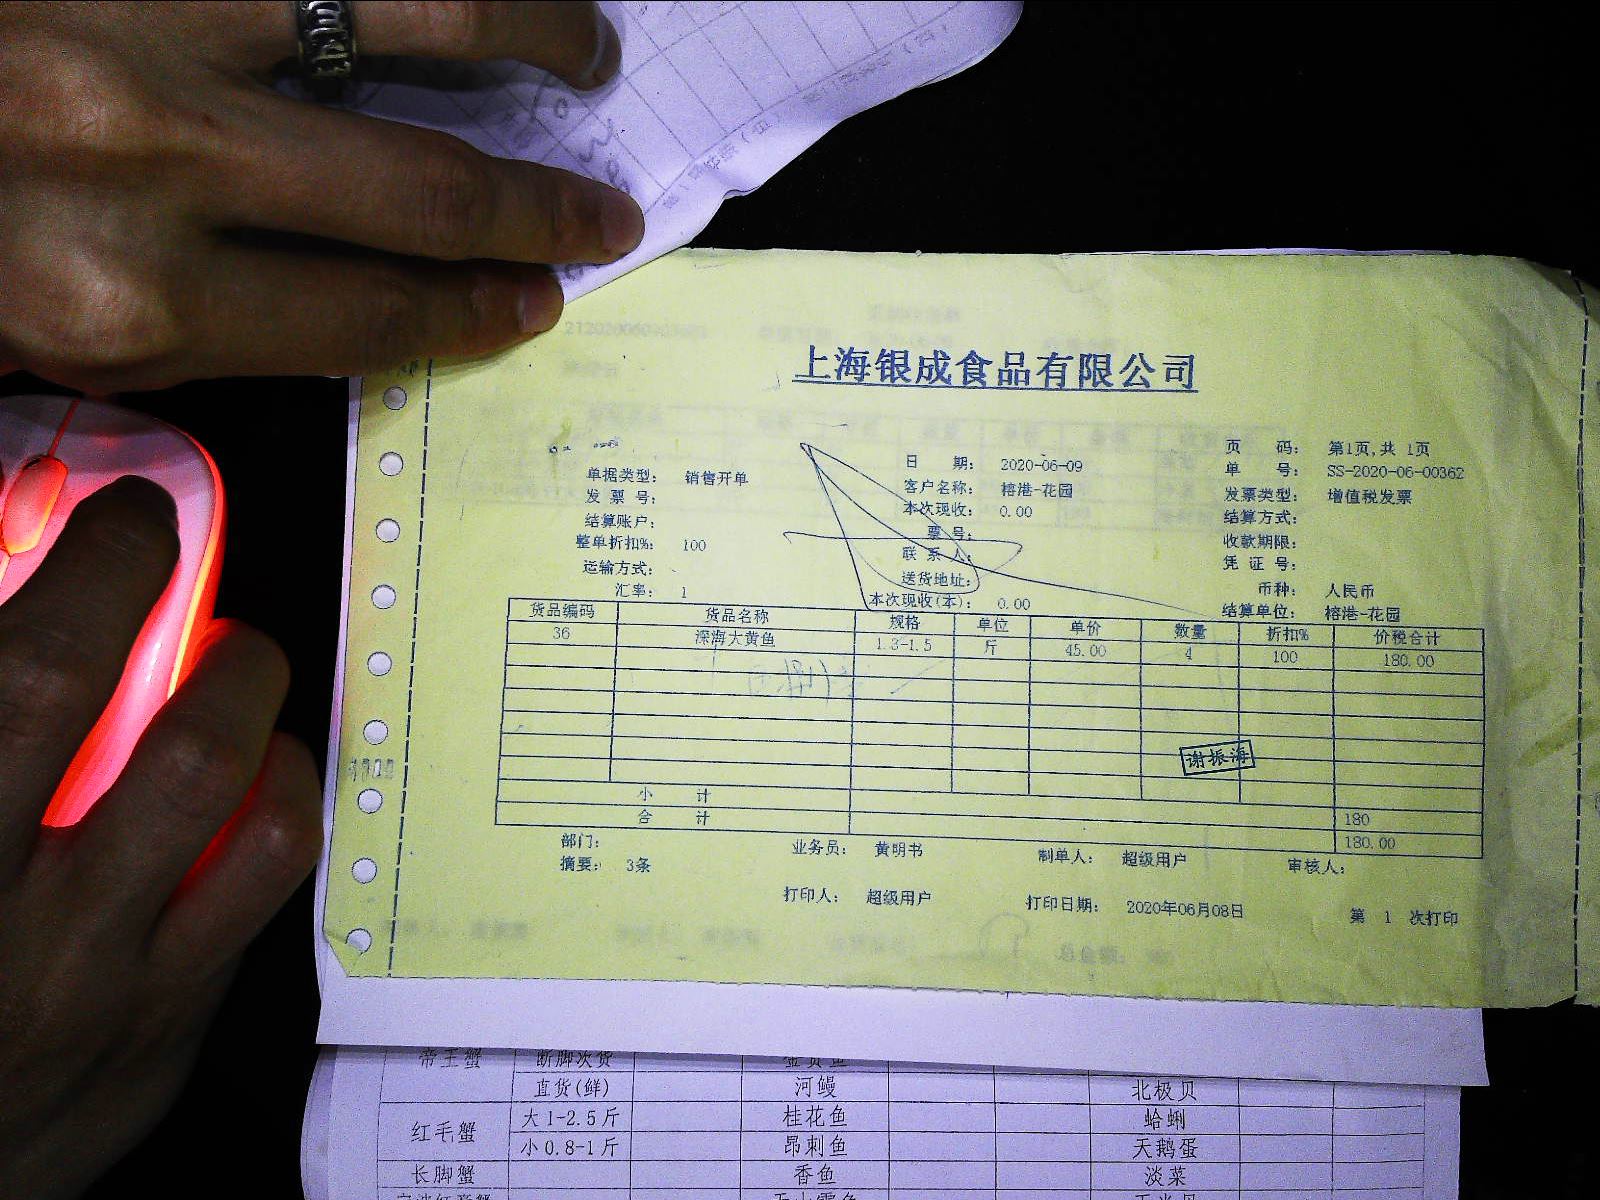 上海银成食品有限公司
单据类型： 销售开单
发 票 号：
结算账户：
整单折扣%： 100
运输方式：
汇率： 1
日 期： 2020-06-09
客户名称： 榕港-花园
本次现收： 0.00
票号：
联 系 人：
送货地址：
本次现收(本)： 0.00
页 码： 第1页,共 1页
单 号： SS-2020-06-00362
发票类型： 增值税发票
结算方式：
收款期限：
凭 证 号：
币种： 人民币
结算单位： 榕港-花园
货品编码 货品名称 规格 单位 单价 数量 折扣% 价税合计
36 深海大黄鱼 1.3-1.5 斤 45.00 4 100 180.00
谢振海
小 计 180
合 计 180.00
部门： 业务员： 黄明书 制单人： 超级用户 审核人：
摘要： 3条
打印人： 超级用户 打印日期： 2020年06月08日 第 1 次打印
帝王蟹 断脚次货
直货(鲜) 河鳗 北极贝
红毛蟹 大1-2.5斤 桂花鱼 蛤蜊
小0.8-1斤 昂刺鱼 天鹅蛋
长脚蟹 香鱼 淡菜